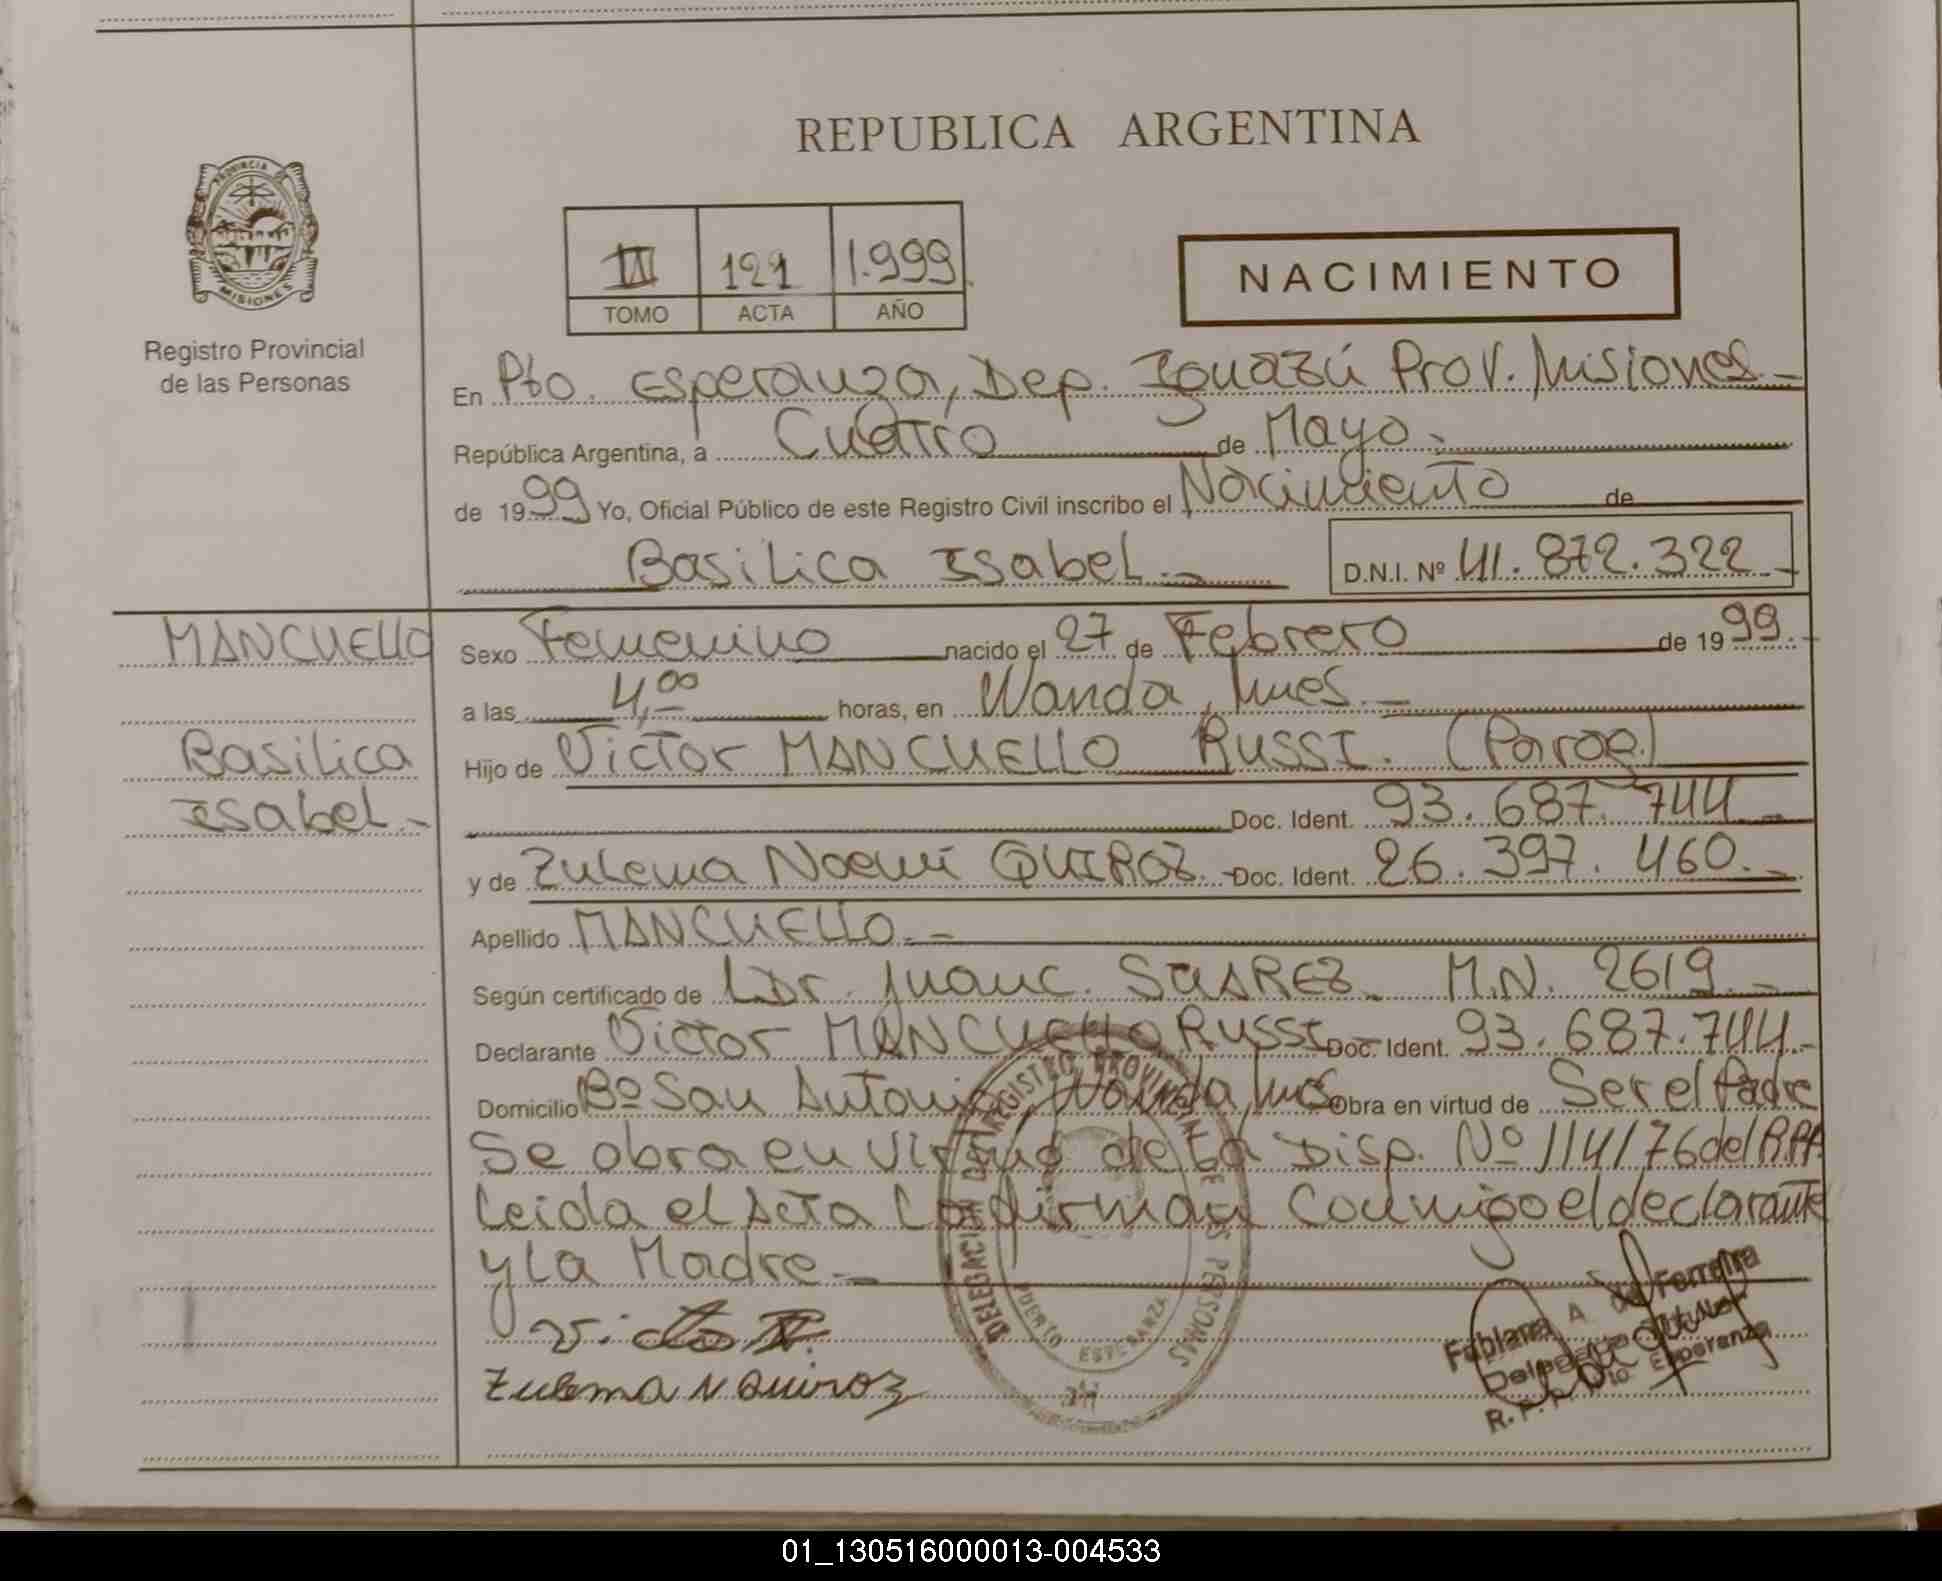 REPUBLICA ARGENTINA
PROVINCIA DE
MISIONES
Registro Provincial
de las Personas
III 121 1.999
TOMO ACTA AÑO
NACIMIENTO
En Pto. Esperanza, Dep. Iguazú Prov. Misiones.-
República Argentina, a Cuatro de Mayo.-
de 1999 Yo, Oficial Público de este Registro Civil inscribo el Nacimiento de
Basilica Isabel.-
D.N.I. Nº 41.872.322.-
MANCUELLO
Basilica
Isabel.-
Sexo Femenino nacido el 27 de Febrero de 1999.-
a las 4,00 horas, en Wanda, Mnes.-
Hijo de Victor MANCUELLO RUSSI. (Parag.)
Doc. Ident. 93.687.744.-
y de Zulema Noemi QUIROZ.- Doc. Ident. 26.397.460.-
Apellido MANCUELLO.-
Según certificado de Dr. Juan C. SUAREZ. M.N. 2619.-
Declarante Victor MANCUELLO RUSSI Doc. Ident. 93.687.744.-
Domicilio Bº San Antonio, Wanda, Mnes Obra en virtud de Ser el Padre
Se obra en virtud de la Disp. Nº 114/76 del R.P.P.
Leida el Acta la firman Conmigo el declarante
y la Madre.-
Zulema N Quiroz
DELEGACION DEL REGISTRO PROVINCIAL DE LAS PERSONAS
PUERTO ESPERANZA
Fabiana A de Ferreira
Titular
R.P.P. Pto. Esperanza
01_130516000013-004533